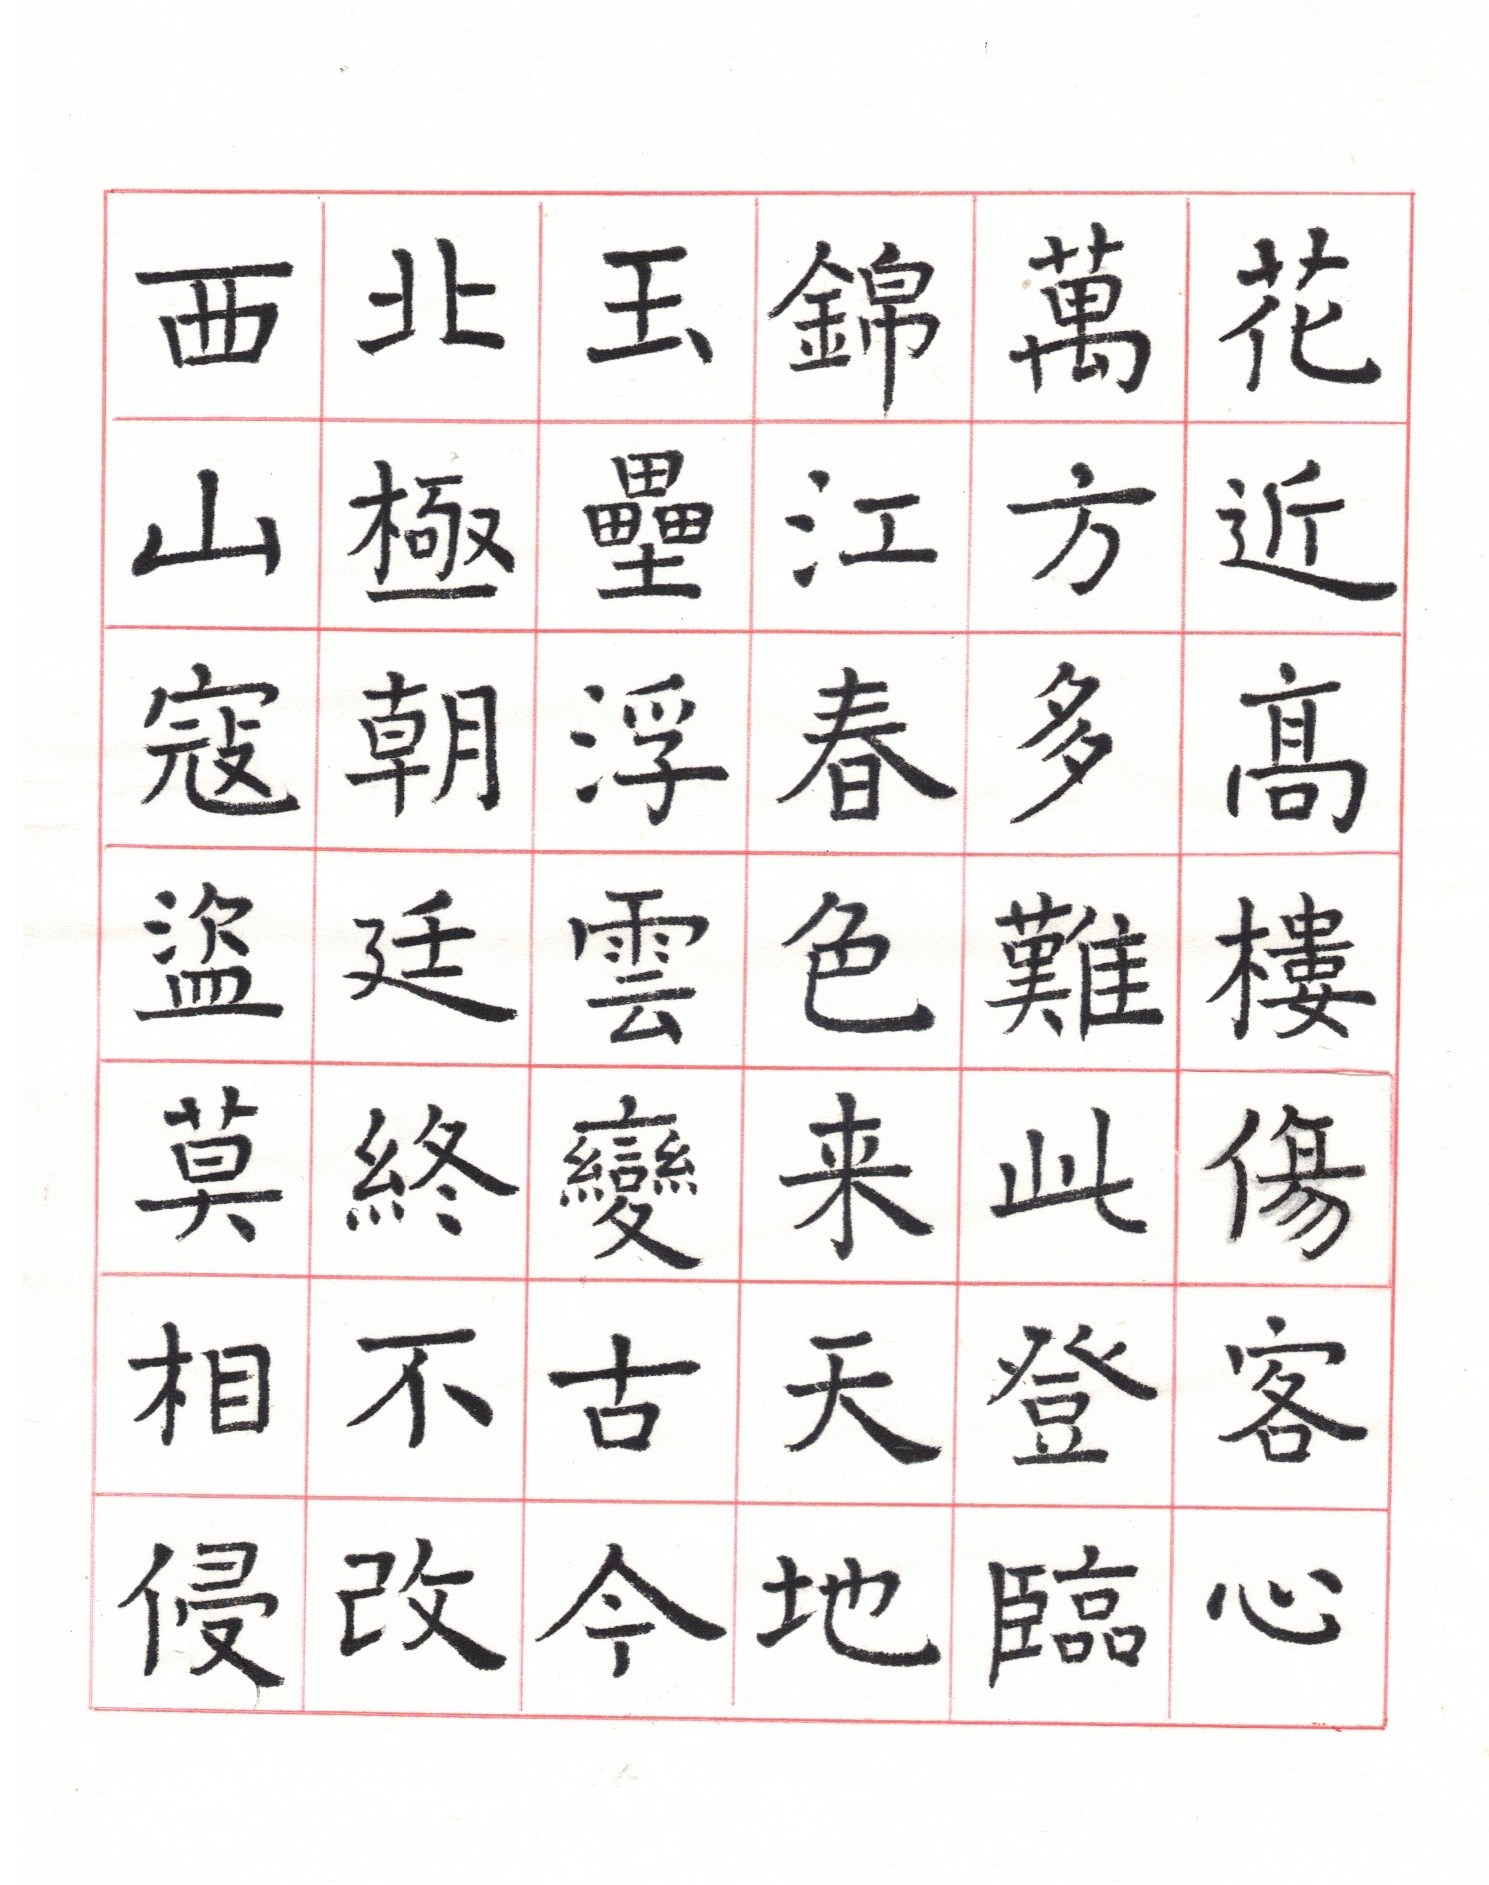 花近髙樓傷客心
萬方多難此登臨
錦江春色来天地
玉壘浮雲變古今
北極朝廷終不改
西山寇盜莫相侵